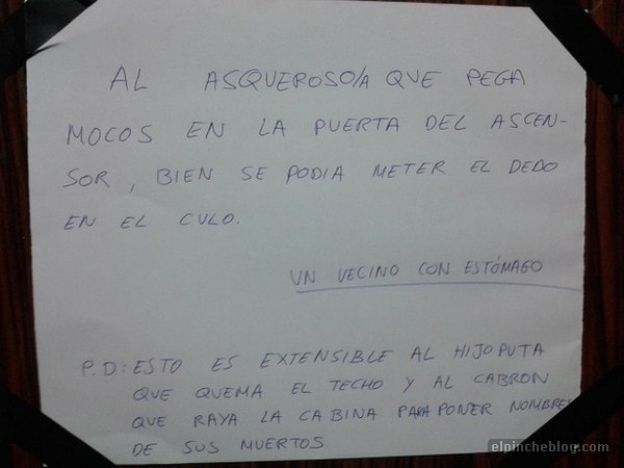 AL ASQUEROSO/A QUE PEGA
MOCOS EN LA PUERTA DEL ASCEN-
SOR, BIEN SE PODIA METER EL DEDO
EN EL CULO.
UN VECINO CON ESTÓMAGO
P.D.: ESTO ES EXTENSIBLE AL HIJOPUTA
QUE QUEMA EL TECHO Y AL CABRON
QUE RAYA LA CABINA PARA PONER NOMBRES
DE SUS MUERTOS
elpincheblog.com